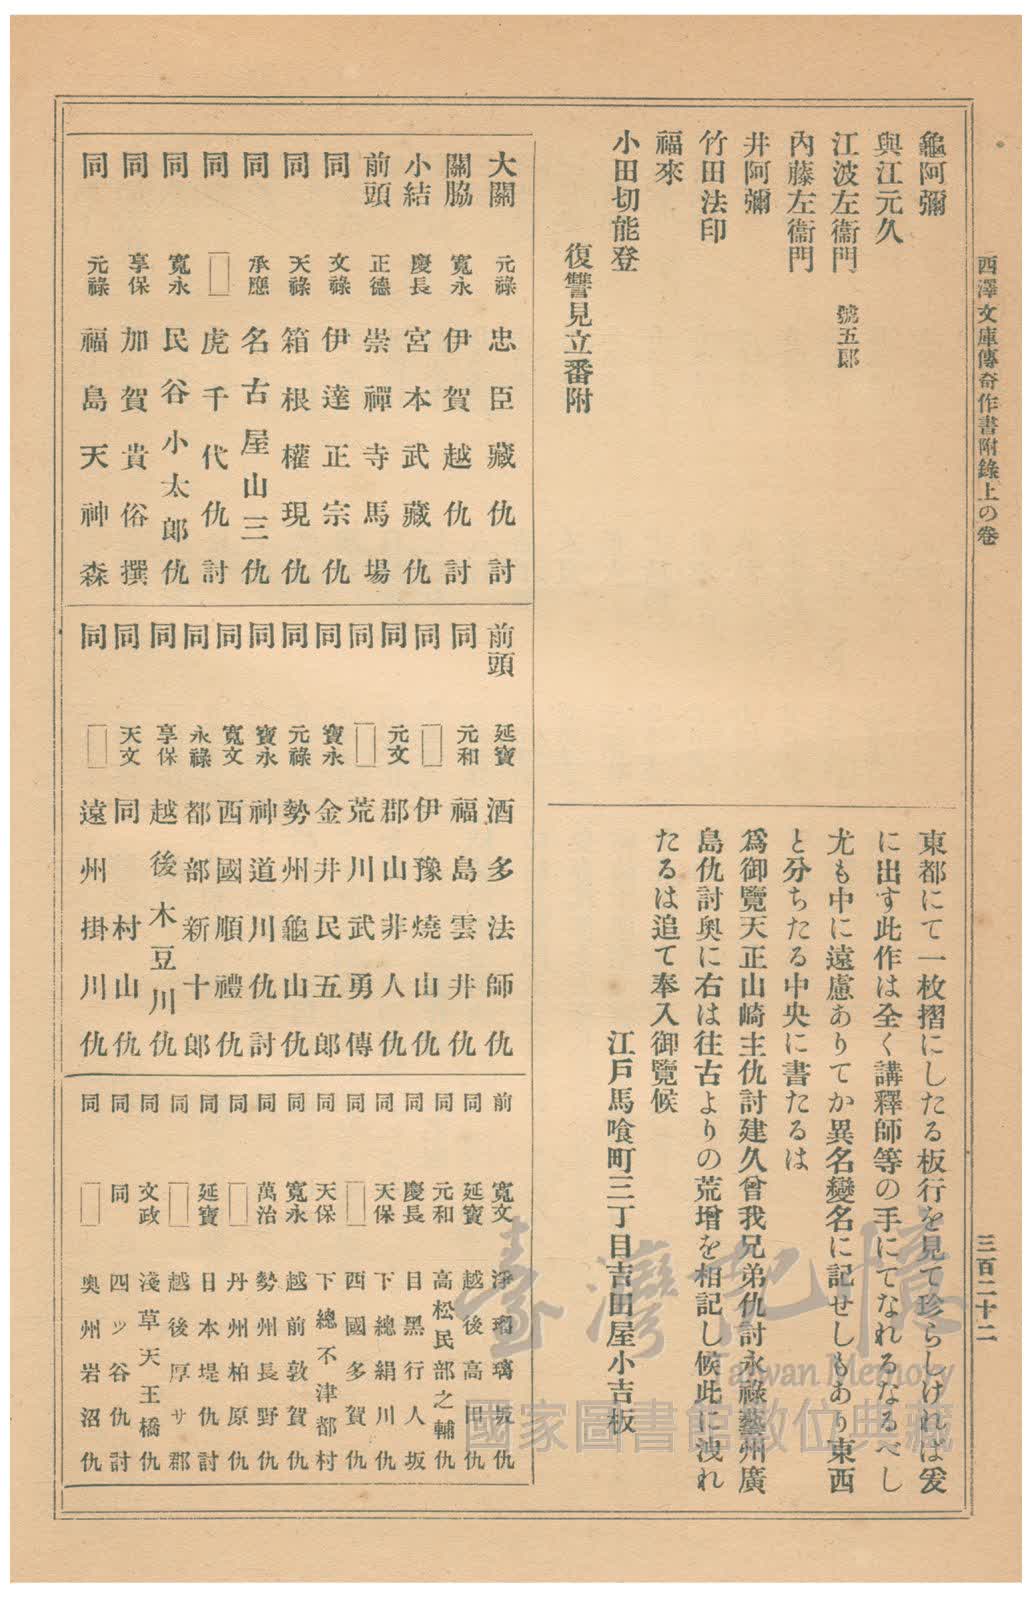 西澤文庫傳奇作書附錄上の卷
三百二十二
龜阿彌
與江元久
江波左衞門 號五郎
內藤左衞門
井阿彌
竹田法印
福來
小田切能登
復讐見立番附
東都にて一枚摺にしたる板行を見て珍らしければ爰
に出す此作は全く講釋師等の手にてなれるなるべし
尤も中に遠慮ありてか異名變名に記せしもあり東西
と分ちたる中央に書たるは
爲御覽天正山崎主仇討建久曾我兄弟仇討永祿藝州廣
島仇討奧に右は往古よりの荒增を相記し候此に洩れ
たるは追て奉入御覽候
江戶馬喰町三丁目吉田屋小吉板
大關 元祿 忠臣藏仇討
關脇 寬永 伊賀越仇討
小結 慶長 宮本武藏仇
前頭 正德 崇禪寺馬場
同 文祿 伊達正宗仇
同 天祿 箱根權現仇
同 承應 名古屋山三仇
同 □ 虎千代仇討
同 寬永 民谷小太郎仇
同 享保 加賀貴俗撰
同 元祿 福島天神森
前頭 延寶 酒多法師仇
同 元和 福島雲井仇
同 □ 伊豫燒山仇
同 元文 郡山非人仇
同 □ 荒川武勇傳
同 寶永 金井民五郎
同 元祿 勢州龜山仇
同 寶永 神道川仇討
同 寬文 西國順禮仇
同 永祿 都部新十郎
同 享保 越後木豆川仇
同 天文 同村山仇
同 □ 遠州掛川仇
前 寬文 淨瑠璃坂仇
同 延寶 越後高田仇
同 元和 高松民部之輔仇
同 慶長 目黑行人坂
同 天保 下總絹川仇
同 □ 西國多賀仇
同 天保 下總不津都村
同 寬永 越前敦賀仇
同 萬治 勢州長野仇
同 □ 丹州柏原仇
同 延寶 日本堤仇討
同 □ 越後厚サ郡
同 文政 淺草天王橋仇
同 同 四ツ谷仇討
同 □ 奧州岩沼仇
臺灣記憶
Taiwan Memory
國家圖書館數位典藏